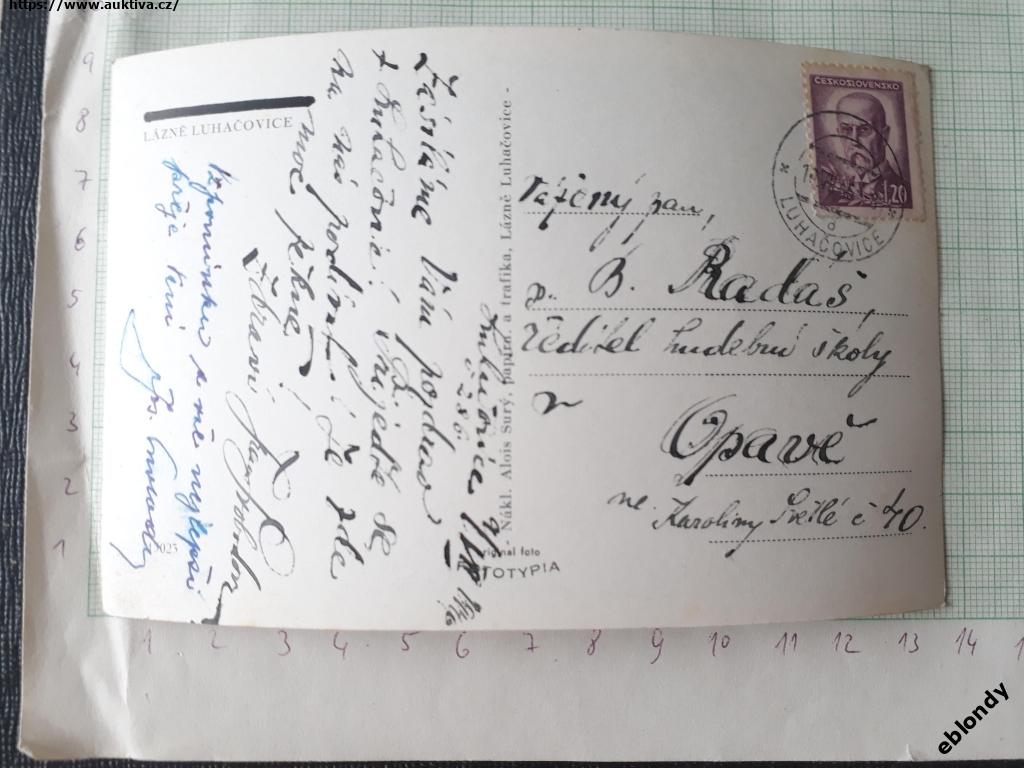 https://www.auktiva.cz/
LÁZNĚ LUHAČOVICE
Luhačovice
Zasíláme Vám pozdrav
z Luhačovic! Přijeďte se
na nás podívat! Je zde
moc pěkně!
Zdraví
Vzpomínku a vše nejlepší
přeje Vám
3023
- Nákl. Alois Surý, papírn. a trafika, Lázně Luhačovice -
original foto
FOTOTYPIA
ČESKOSLOVENSKO
1.20
LUHAČOVICE
Vážený pan,
p. B. Radaš,
ředitel hudební školy
v
Opavě
Karoliny Světlé č 40.
9
8
7
6
5
4
3
2
1
1 2 3 4 5 6 7 8 9 10 11 12 13 14 1
eblondy